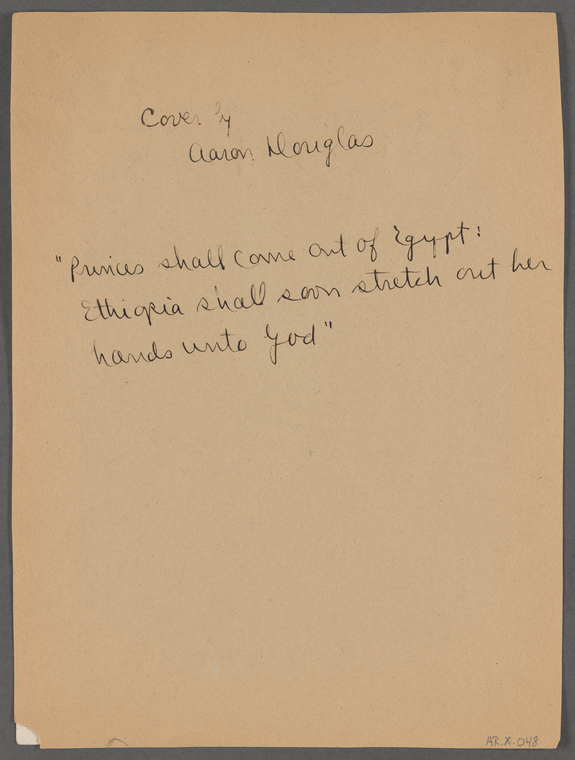 Cover by
Aaron Douglas
"Princes shall come out of Egypt:
Ethiopia shall soon stretch out her
hands unto God"
AR.X.048